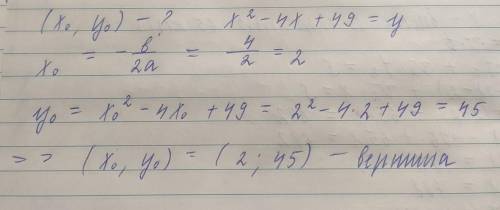 (x₀, y₀) - ? x² - 4x + 49 = y
x₀ = - в/2a = 4/2 = 2
y₀ = x₀² - 4x₀ + 49 = 2² - 4·2 + 49 = 45
=> (x₀, y₀) = (2; 45) - вершина